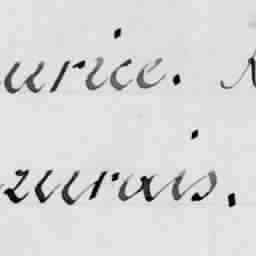 urice.
zurais.